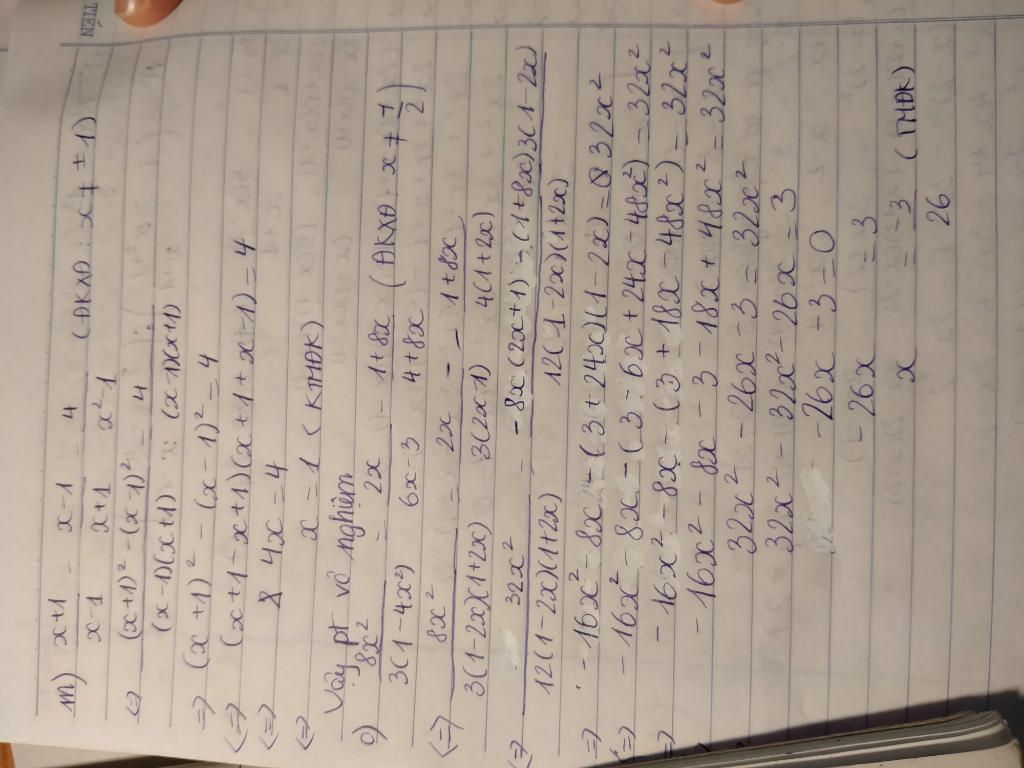 TIẾN
m) \frac{x+1}{x-1} - \frac{x-1}{x+1} = \frac{4}{x²-1} (ĐKXĐ: x ≠ ±1)
⇔ \frac{(x+1)² - (x-1)²}{(x-1)(x+1)} = \frac{4}{(x-1)(x+1)}
⇒ (x+1)² - (x-1)² = 4
⇔ (x+1-x+1)(x+1+x-1) = 4
⇔ 4x = 4
⇔ x = 1 (KTMĐK)
Vậy pt vô nghiệm
o) \frac{8x²}{3(1-4x²)} = \frac{2x}{6x-3} - \frac{1+8x}{4+8x} (ĐKXĐ: x ≠ \frac{1}{2})
⇔ \frac{8x²}{3(1-2x)(1+2x)} = \frac{2x}{3(2x-1)} - \frac{1+8x}{4(1+2x)}
⇔ \frac{32x²}{12(1-2x)(1+2x)} = \frac{-8x(2x+1) - (1+8x)3(1-2x)}{12(1-2x)(1+2x)}
⇒ -16x² - 8x - (3+24x)(1-2x) = 32x²
⇔ -16x² - 8x - (3-6x+24x-48x²) = 32x²
⇒ -16x² - 8x - (3+18x-48x²) = 32x²
-16x² - 8x - 3 - 18x + 48x² = 32x²
32x² - 26x - 3 = 32x²
32x² - 32x² - 26x = 3
-26x - 3 = 0
-26x = 3
x = \frac{-3}{26} (TMĐK)